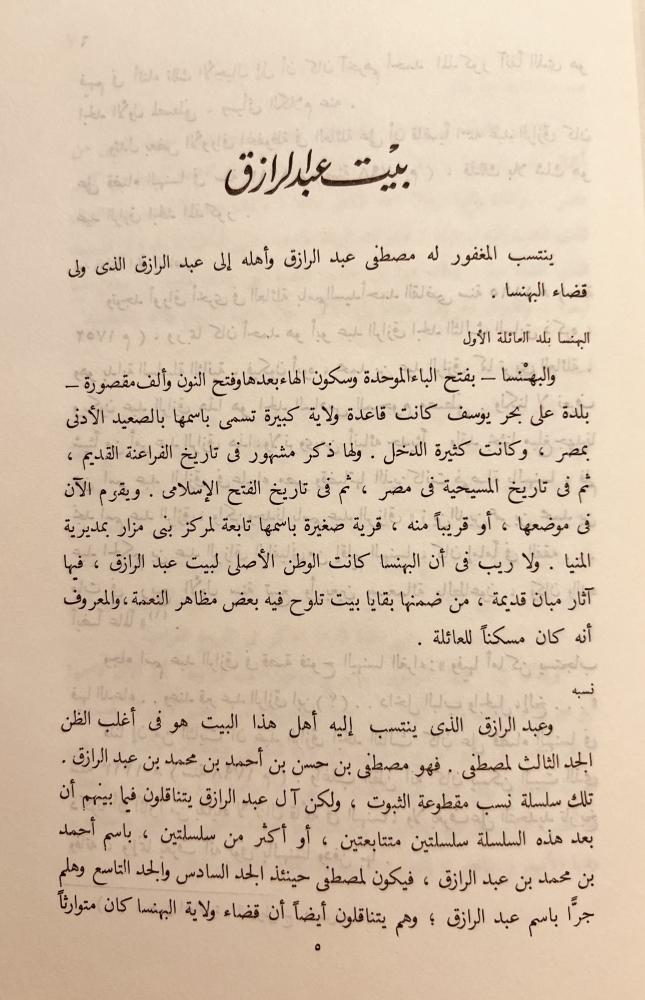 بيت عبد الرازق
ينتسب المغفور له مصطفى عبد الرازق وأهله إلى عبد الرازق الذى ولى
قضاء البهنسا .
البهنسا بلد العائلة الأول
والبهْنسا – بفتح الباء الموحدة وسكون الهاء بعدها وفتح النون وألف مقصورة –
بلدة على بحر يوسف كانت قاعدة ولاية كبيرة تسمى باسمها بالصعيد الأدنى
بمصر ، وكانت كثيرة الدخل . ولها ذكر مشهور فى تاريخ الفراعنة القديم ،
ثم فى تاريخ المسيحية فى مصر ، ثم فى تاريخ الفتح الإسلامى . ويقوم الآن
فى موضعها ، أو قريباً منه ، قرية صغيرة باسمها تابعة لمركز بنى مزار بمديرية
المنيا . ولا ريب فى أن البهنسا كانت الوطن الأصلى لبيت عبد الرازق ، فيها
آثار مبان قديمة ، من ضمنها بقايا بيت تلوح فيه بعض مظاهر النعمة ، والمعروف
أنه كان مسكناً للعائلة .
نسبه
وعبد الرازق الذى ينتسب إليه أهل هذا البيت هو فى أغلب الظن
الجد الثالث لمصطفى . فهو مصطفى بن حسن بن أحمد بن محمد بن عبد الرازق .
تلك سلسلة نسب مقطوعة الثبوت ، ولكن آل عبد الرازق يتناقلون فيما بينهم أن
بعد هذه السلسلة سلسلتين متتابعتين ، أو أكثر من سلسلتين ، باسم أحمد
بن محمد بن عبد الرازق ، فيكون لمصطفى حينئذ الجد السادس والجد التاسع وهلم
جرًّا باسم عبد الرازق ؛ وهم يتناقلون أيضاً أن قضاء ولاية البهنسا كان متوارثاً
٥